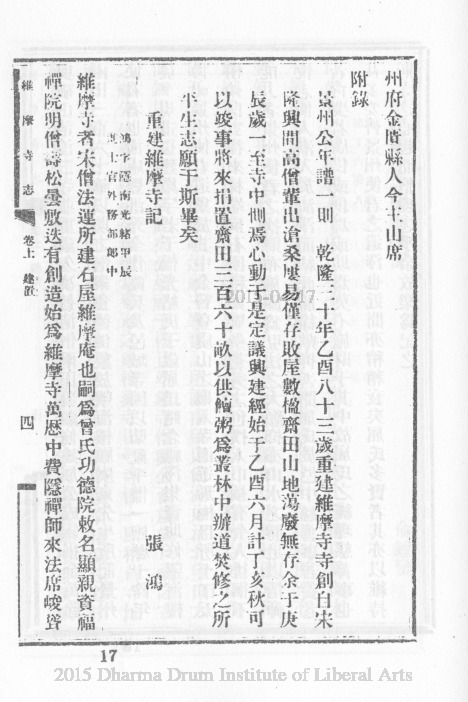 州府金匱縣人今主山席
附錄
景州公年譜一則　乾隆三十年乙酉八十三歲重建維摩寺寺創自宋
隆興間高僧輩出滄桑屢易僅存敗屋數楹齋田山地蕩廢無存余于庚
辰歲一至寺中惻焉心動于是定議興建經始于乙酉六月計丁亥秋可
以竣事將來捐置齋田三百六十畝以供饘粥爲叢林中辦道焚修之所
平生志願于斯畢矣
重建維摩寺記
鴻字隱南光緒甲辰
進士官外務部郎中
張鴻
維摩寺者宋僧法運所建石屋維摩庵也嗣爲曾氏功德院敕名顯親資福
禪院明僧壽松曇敷迭有創造始爲維摩寺萬歷中費隱禪師來法席峻聳
維摩寺志
卷上
建置
四
17
2015-04-17
2015 Dharma Drum Institute of Liberal Arts